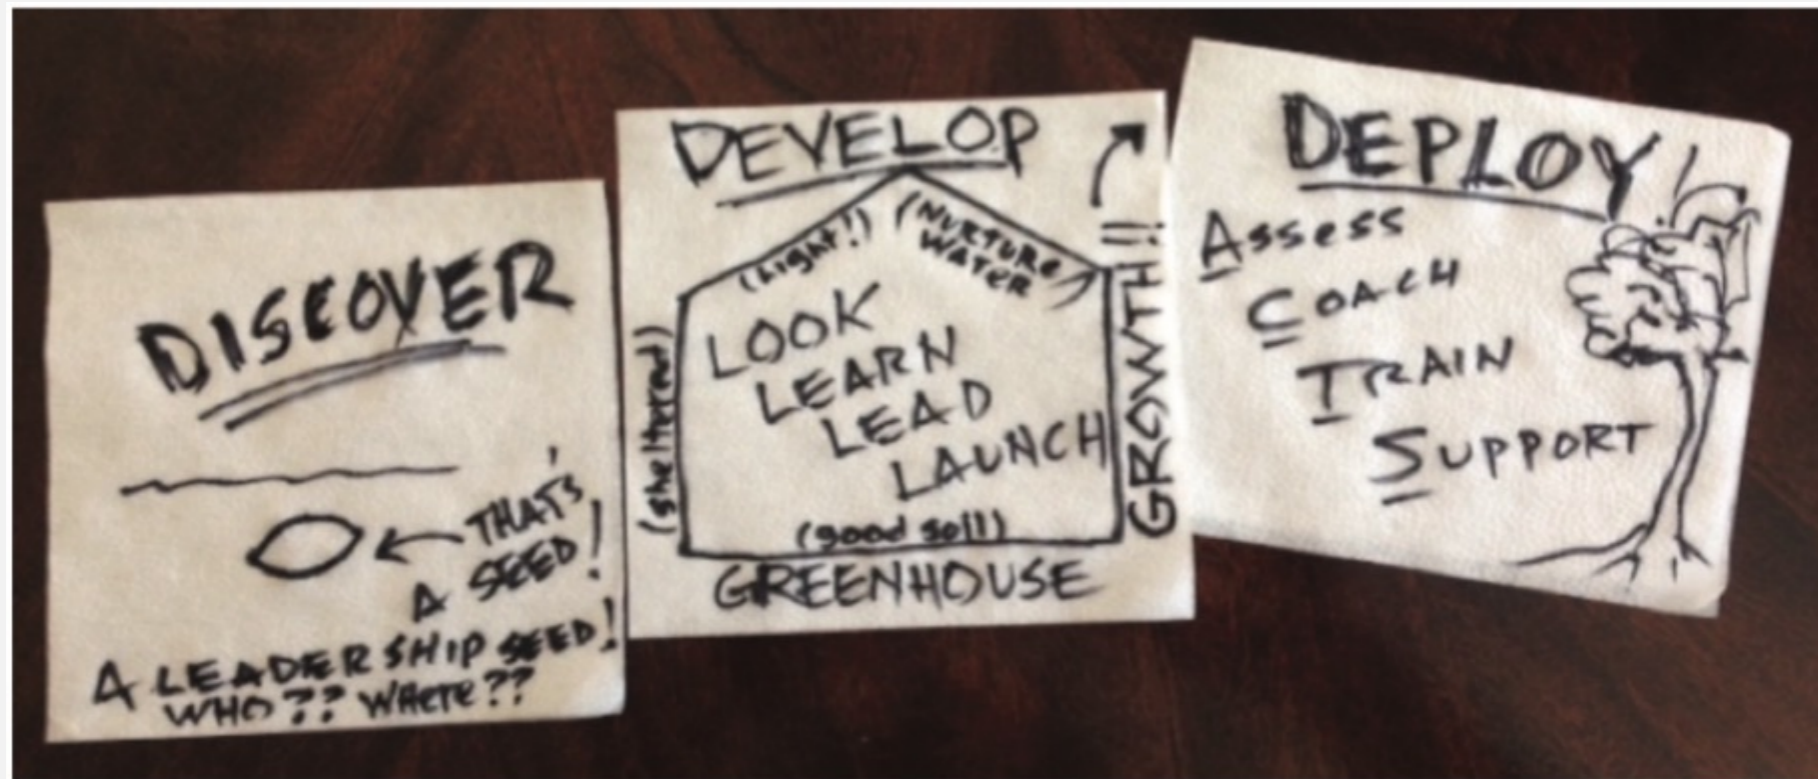 DISCOVER
THAT'S
A SEED!
A LEADERSHIP SEED!
WHO?? WHERE??
DEVELOP
(Light!)
(NURTURE
WATER)
(sheltered)
LOOK
LEARN
LEAD
LAUNCH
(good soil)
GREENHOUSE
GROWTH!!
DEPLOY
Assess
COACH
TRAIN
SUPPORT